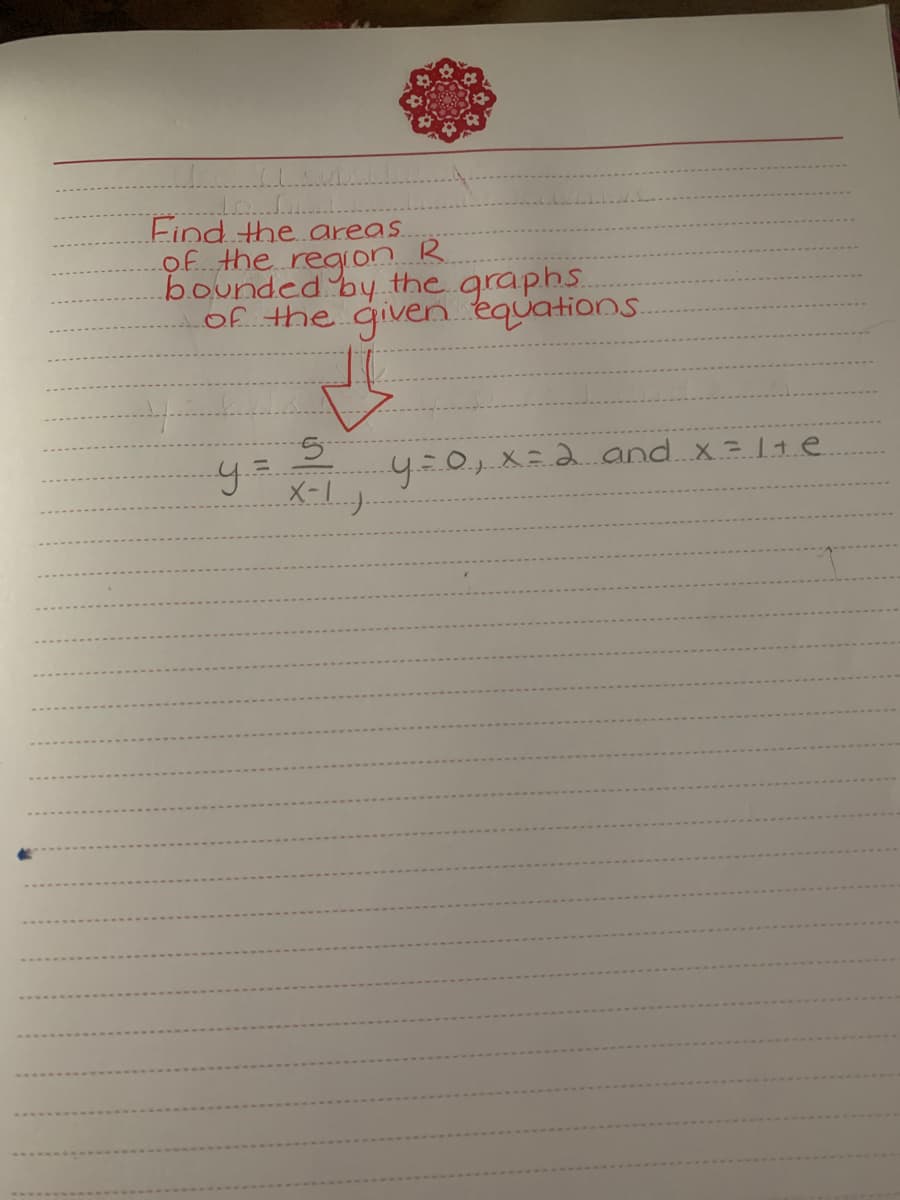 Find the areas
of the region R
bounded by the graphs
of the given equations
y = 5/x-1, y=0, x=2 and x=1+e